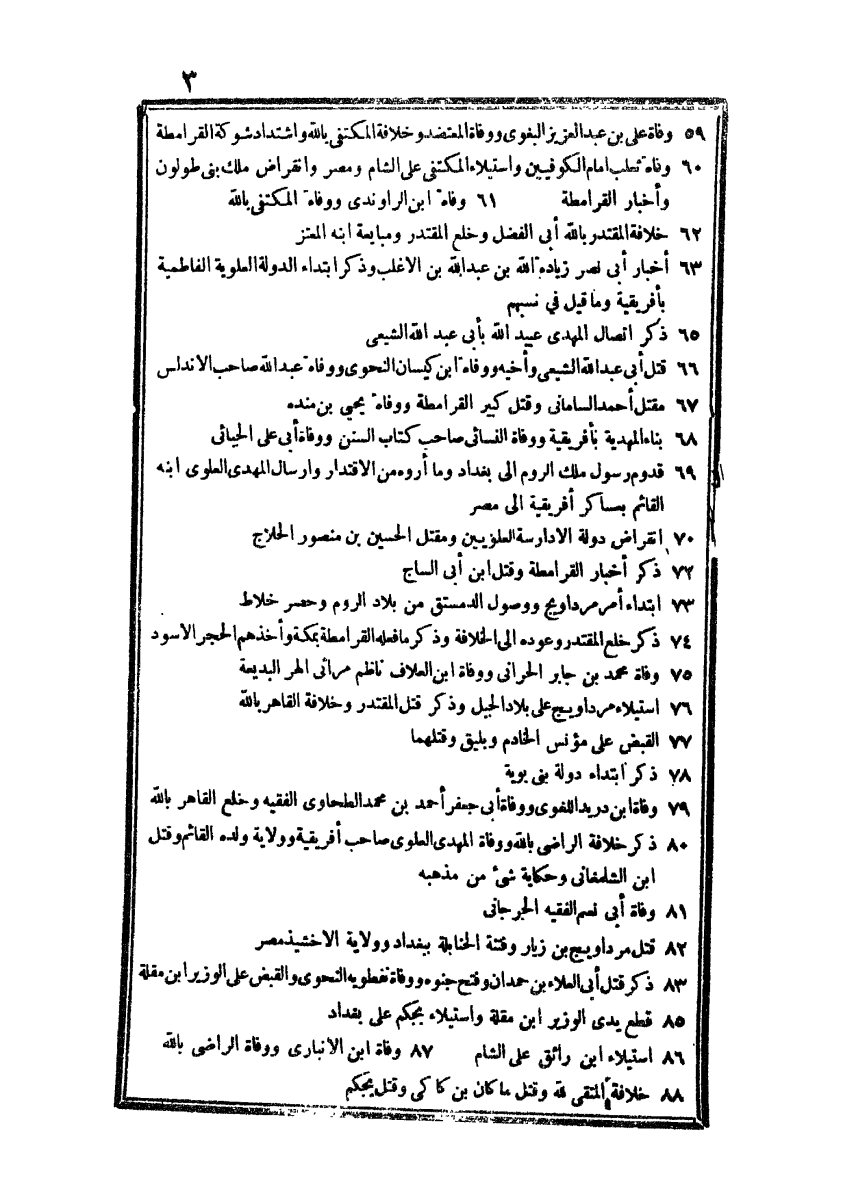 ٣
٥٩ وفاة على بن عبد العزيز البغوى ووفاة المعتضد وخلافة المكتفى بالله واشتداد شوكة القرامطة
٦٠ وفاة ثعلب امام الكوفيين واستيلاء المكتفى على الشام ومصر وانقراض ملك بنى طولون
وأخبار القرامطة ٦١ وفاة ابن الراوندى ووفاة المكتفى بالله
٦٢ خلافة المقتدر بالله أبى الفضل وخلع المقتدر ومبايعة ابنه المعتز
٦٣ أخبار أبى نصر زيادة الله بن عبدالله بن الاغلب وذكر ابتداء الدولة العلوية الفاطمية
بأفريقية وما قيل في نسبهم
٦٥ ذكر اتصال المهدى عبيد الله بأبى عبد الله الشيعى
٦٦ قتل أبى عبدالله الشيعى وأخيه ووفاة ابن كيسان النحوى ووفاة عبدالله صاحب الاندلس
٦٧ مقتل أحمد السامانى وقتل كبير القرامطة ووفاة يحيى بن منده
٦٨ بناء المهدية بأفريقية ووفاة النسائى صاحب كتاب السنن ووفاة أبى على الجبائى
٦٩ قدوم رسول ملك الروم الى بغداد وما أروه من الاقتدار وارسال المهدى العلوى ابنه
القائم بعساكر أفريقية الى مصر
٧٠ انقراض دولة الادارسة العلويين ومقتل الحسين بن منصور الحلاج
٧٢ ذكر أخبار القرامطة وقتل ابن أبى الساج
٧٣ ابتداء أمر مرداويج ووصول الدمستق من بلاد الروم وحصر خلاط
٧٤ ذكر خلع المقتدر وعوده الى الخلافة وذكر مافعله القرامطة بمكة وأخذهم الحجر الاسود
٧٥ وفاة محمد بن جابر الحرانى ووفاة ابن العلاف ناظم مراثى الهر البديعة
٧٦ استيلاء مرداويج على بلاد الجبل وذكر قتل المقتدر وخلافة القاهر بالله
٧٧ القبض على مؤنس الخادم وبليق وقتلهما
٧٨ ذكر ابتداء دولة بنى بوية
٧٩ وفاة ابن دريد اللغوى ووفاة أبى جعفر أحمد بن محمد الطحاوى الفقيه وخلع القاهر بالله
٨٠ ذكر خلافة الراضى بالله ووفاة المهدى العلوى صاحب أفريقية وولاية ولده القائم وقتل
ابن الشلمغانى وحكاية شئ من مذهبه
٨١ وفاة أبى نعيم الفقيه الجرجانى
٨٢ قتل مرداويج بن زيار وفتنة الحنابلة ببغداد وولاية الاخشيذ مصر
٨٣ ذكر قتل أبى العلاء بن حمدان وفتح جنوه ووفاة نفطويه النحوى والقبض على الوزير ابن مقلة
٨٥ قطع يدى الوزير ابن مقلة واستيلاء بجكم على بغداد
٨٦ استيلاء ابن رائق على الشام ٨٧ وفاة ابن الانبارى ووفاة الراضى بالله
٨٨ خلافة المتقى لله وقتل ماكان بن كاكى وقتل بجكم